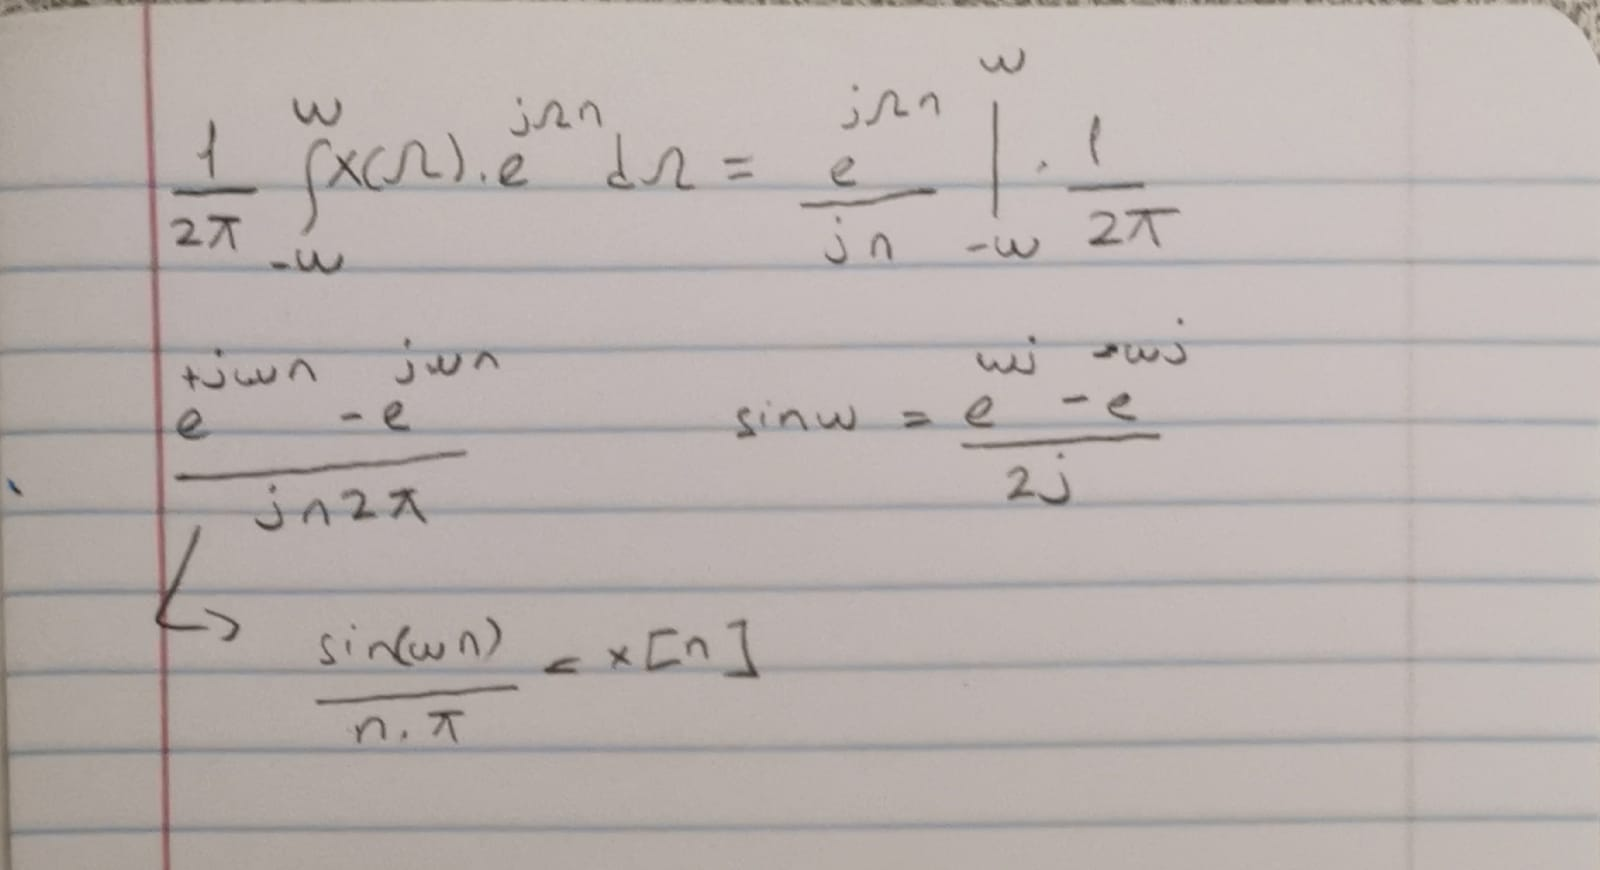 1/2π ∫_{-w}^{w} x(Ω).e^{jΩn} dΩ = e^{jΩn}/jn |_{-w}^{w} . 1/2π
(e^{+jwn} - e^{jwn})/(jn2π)    sinw = (e^{wj} - e^{-wj})/2j
↳ sin(wn)/(n.π) = x[n]